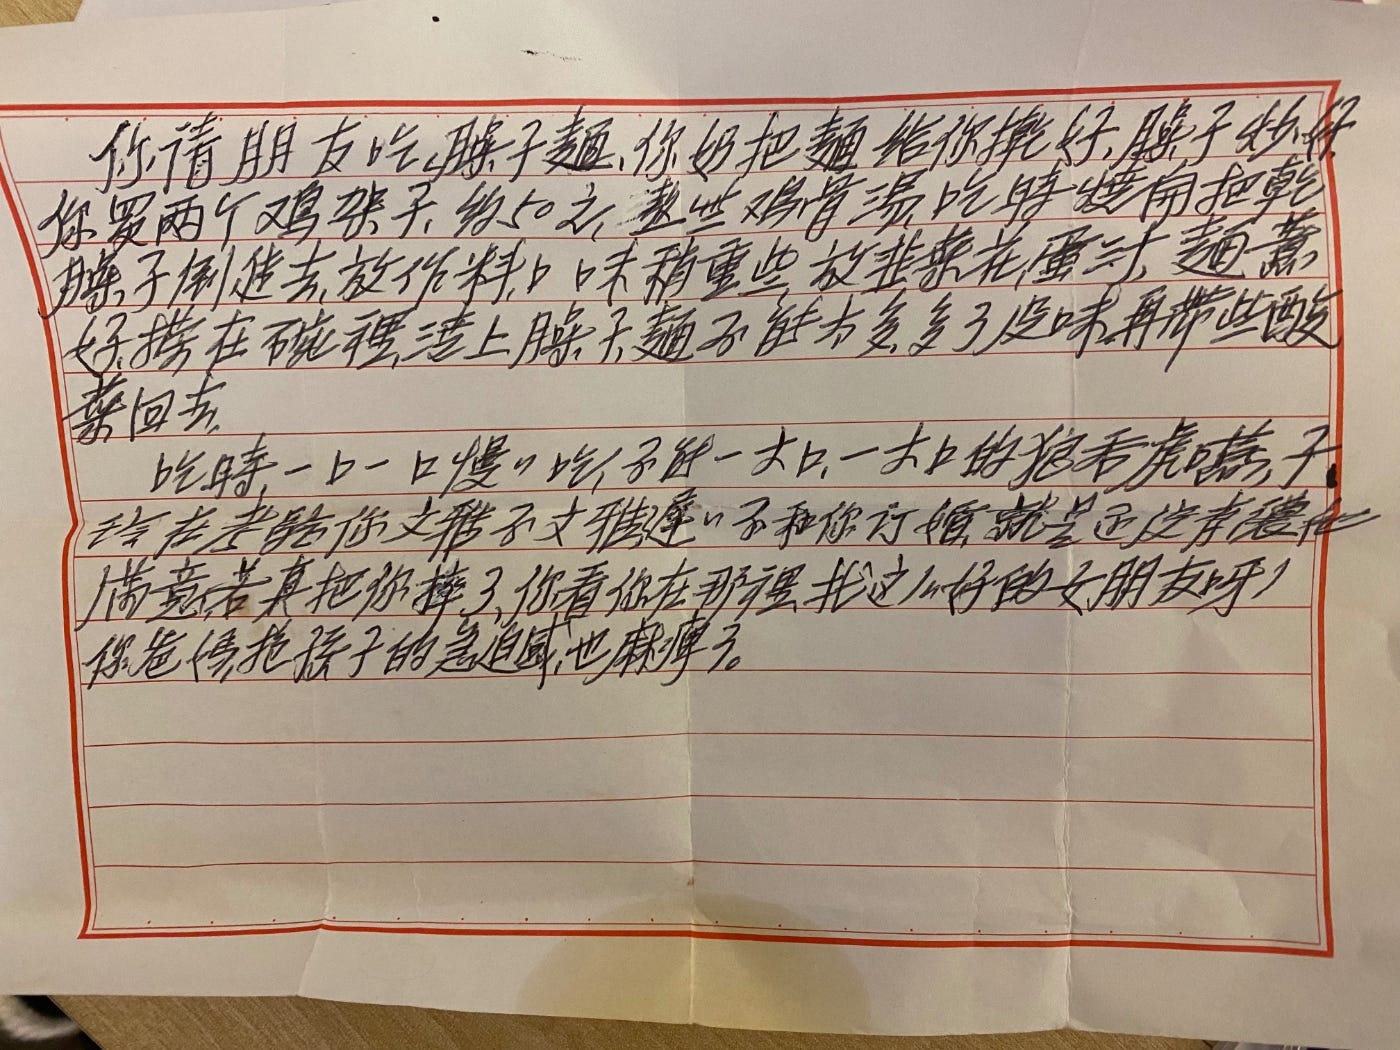 你请朋友吃臊子麵、你奶把麵给你擀好、臊子炒好、
你买两个鸡架子、约50元、熬些鸡骨湯、吃時燒開把乾
臊子倒进去、放作料、口味稍重些、放韭菜花、蛋
好、捞在碗裡、浇上臊子、麵不能太多、多了没味、再帶些酸
菜回去、
吃時、一口一口慢〃吃、不能一大口、一大口的狼吞虎嚥、子
玲在考驗你文雅不文雅、遲〃不和你订婚、就是还没有讓他
满意、若真把你摔了、你看你在那裡、找这么好的女朋友呀！
你爸媽、抱孫子的急迫感、也麻痺了。